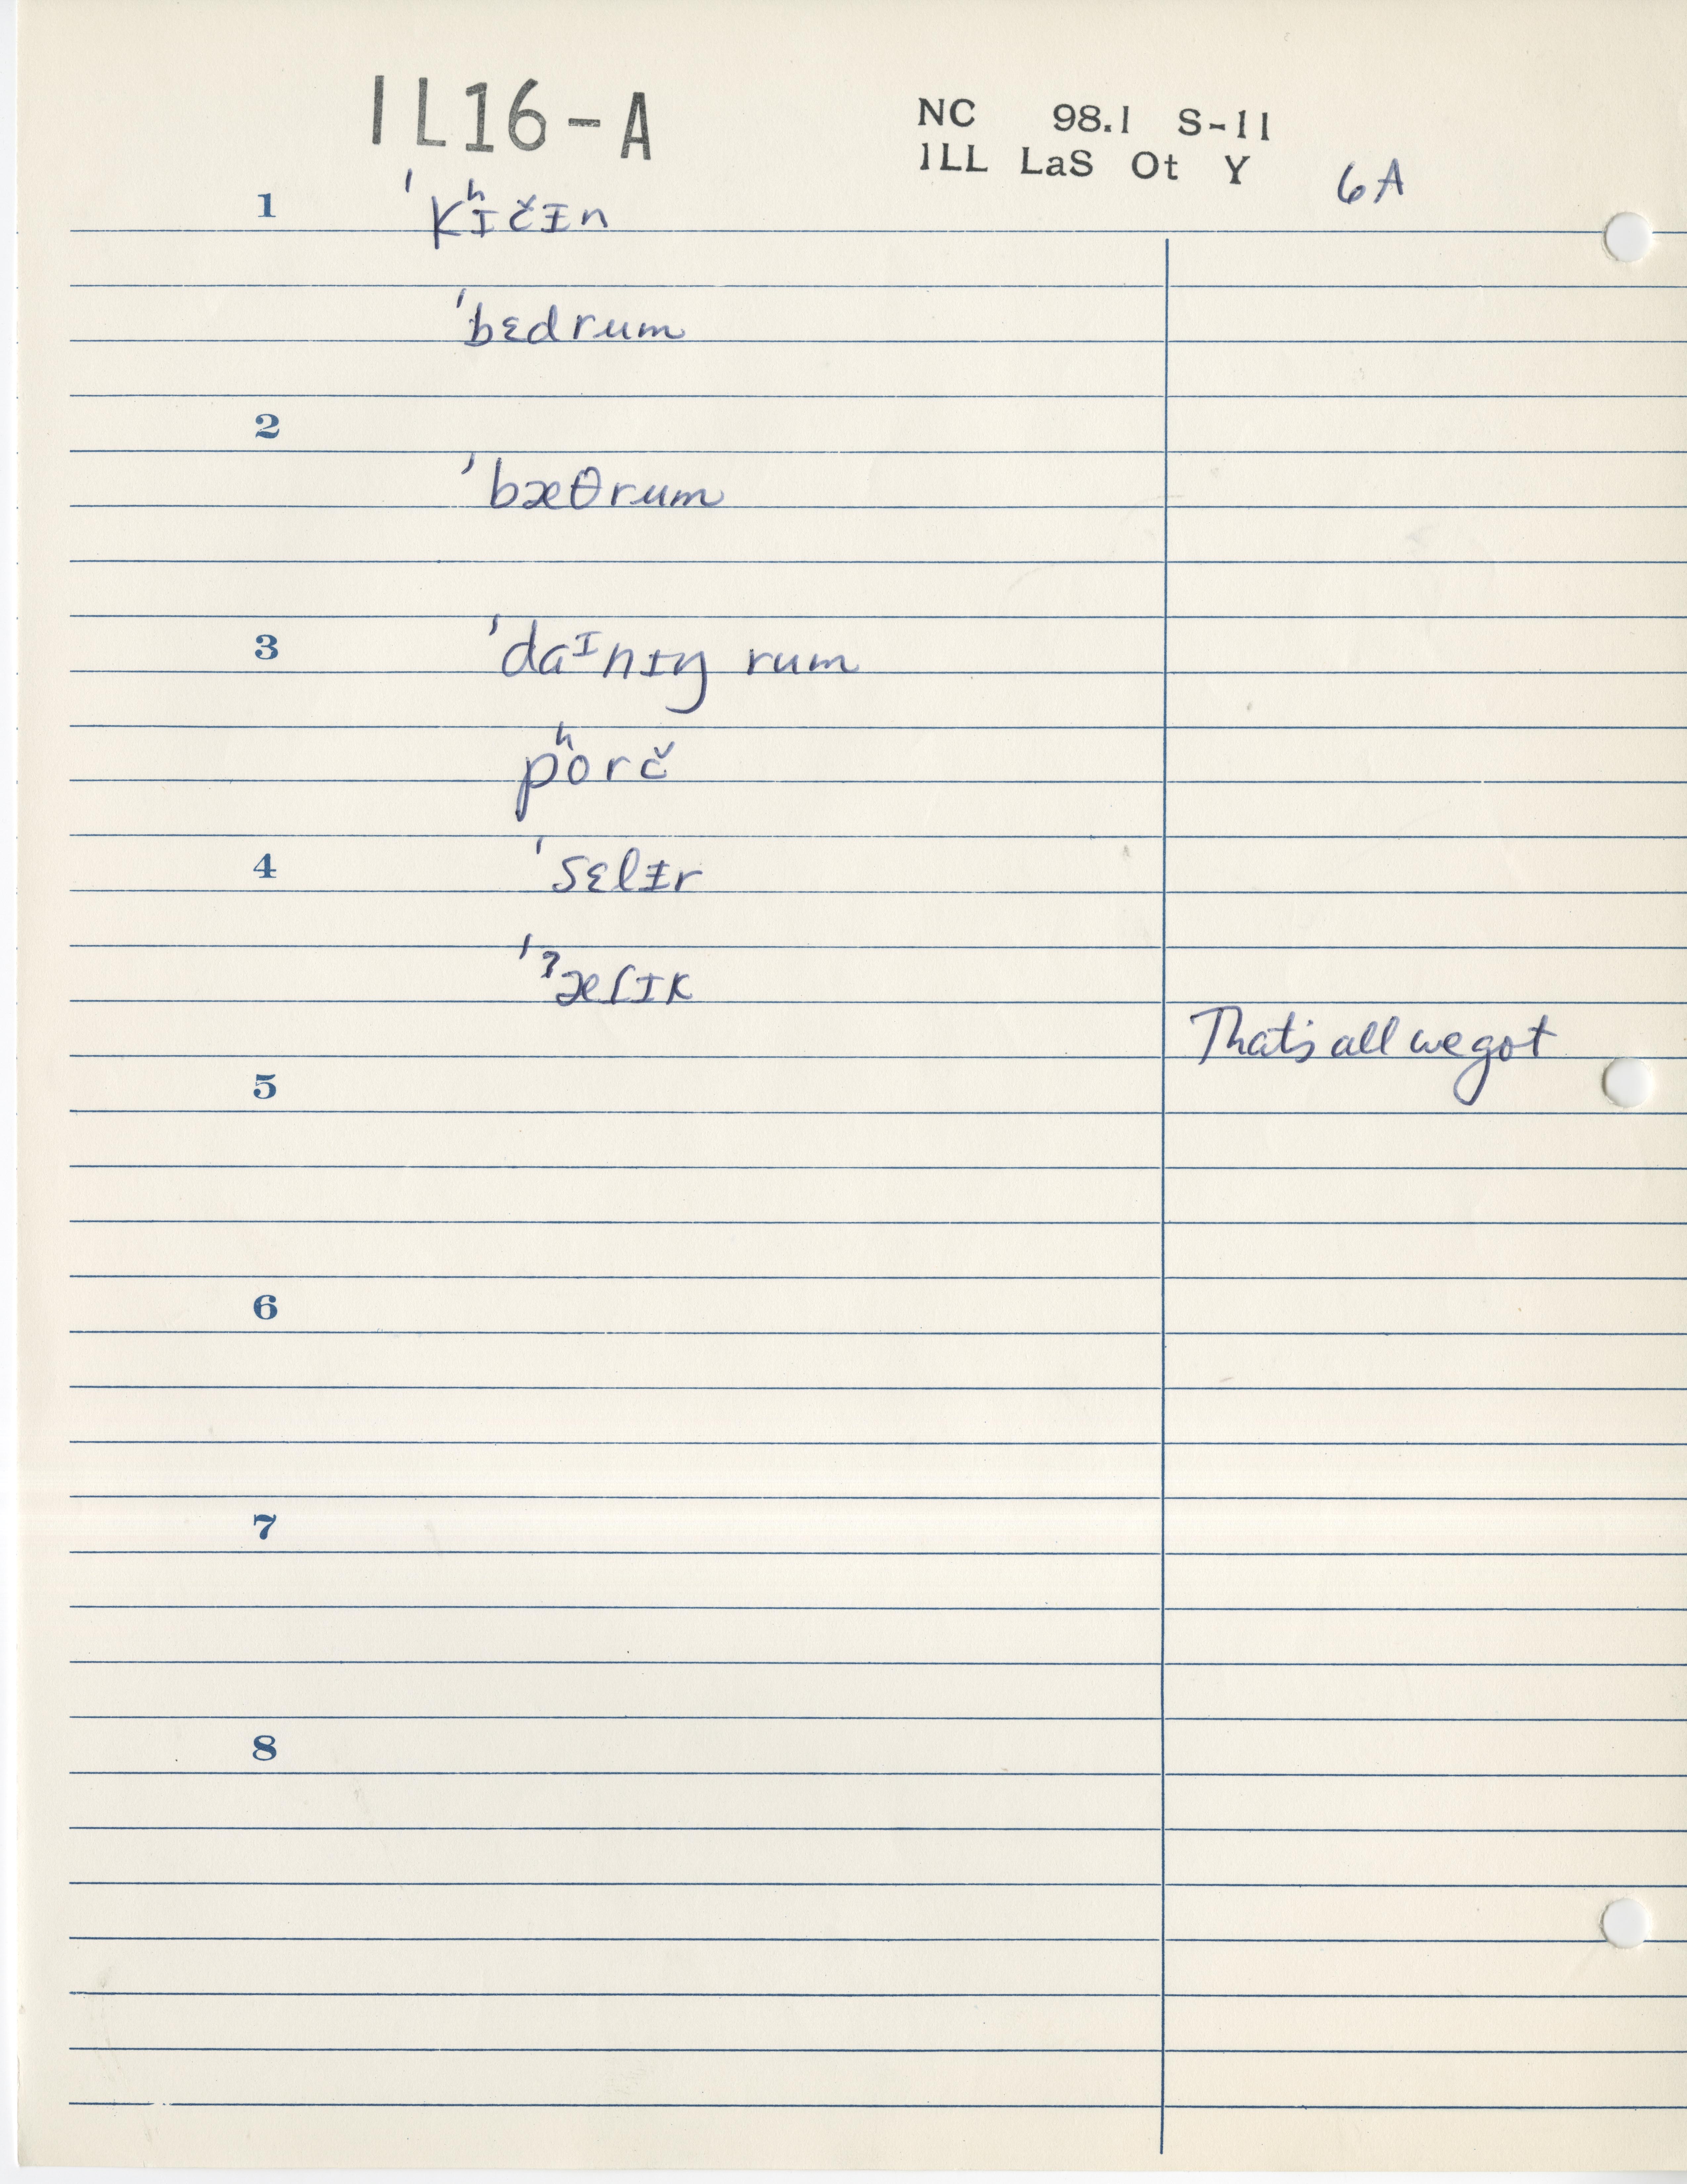 IL16-A
NC 98.1 S-11
ILL LaS Ot Y
6A
1 ˈkʰɪčᵻn
ˈbɛdrum
2
ˈbæθrum
3 ˈdaᴵnɪŋ rum
pʰorč
4 ˈsɛlᵻr
ˈˀæɾɪk
That's all we got
5
6
7
8